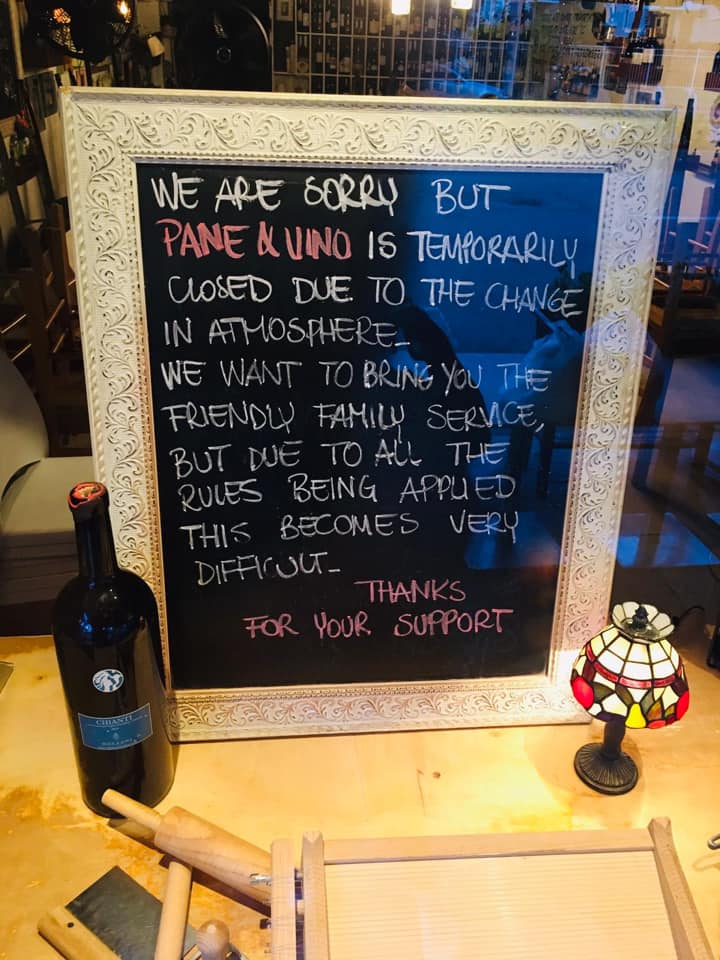 WE ARE SORRY BUT
PANE & VINO IS TEMPORARILY
CLOSED DUE TO THE CHANGE
IN ATMOSPHERE_
WE WANT TO BRING YOU THE
FRIENDLY FAMILY SERVICE,
BUT DUE TO ALL THE
RULES BEING APPLIED
THIS BECOMES VERY
DIFFICULT_
THANKS
FOR YOUR SUPPORT
CHIANTI